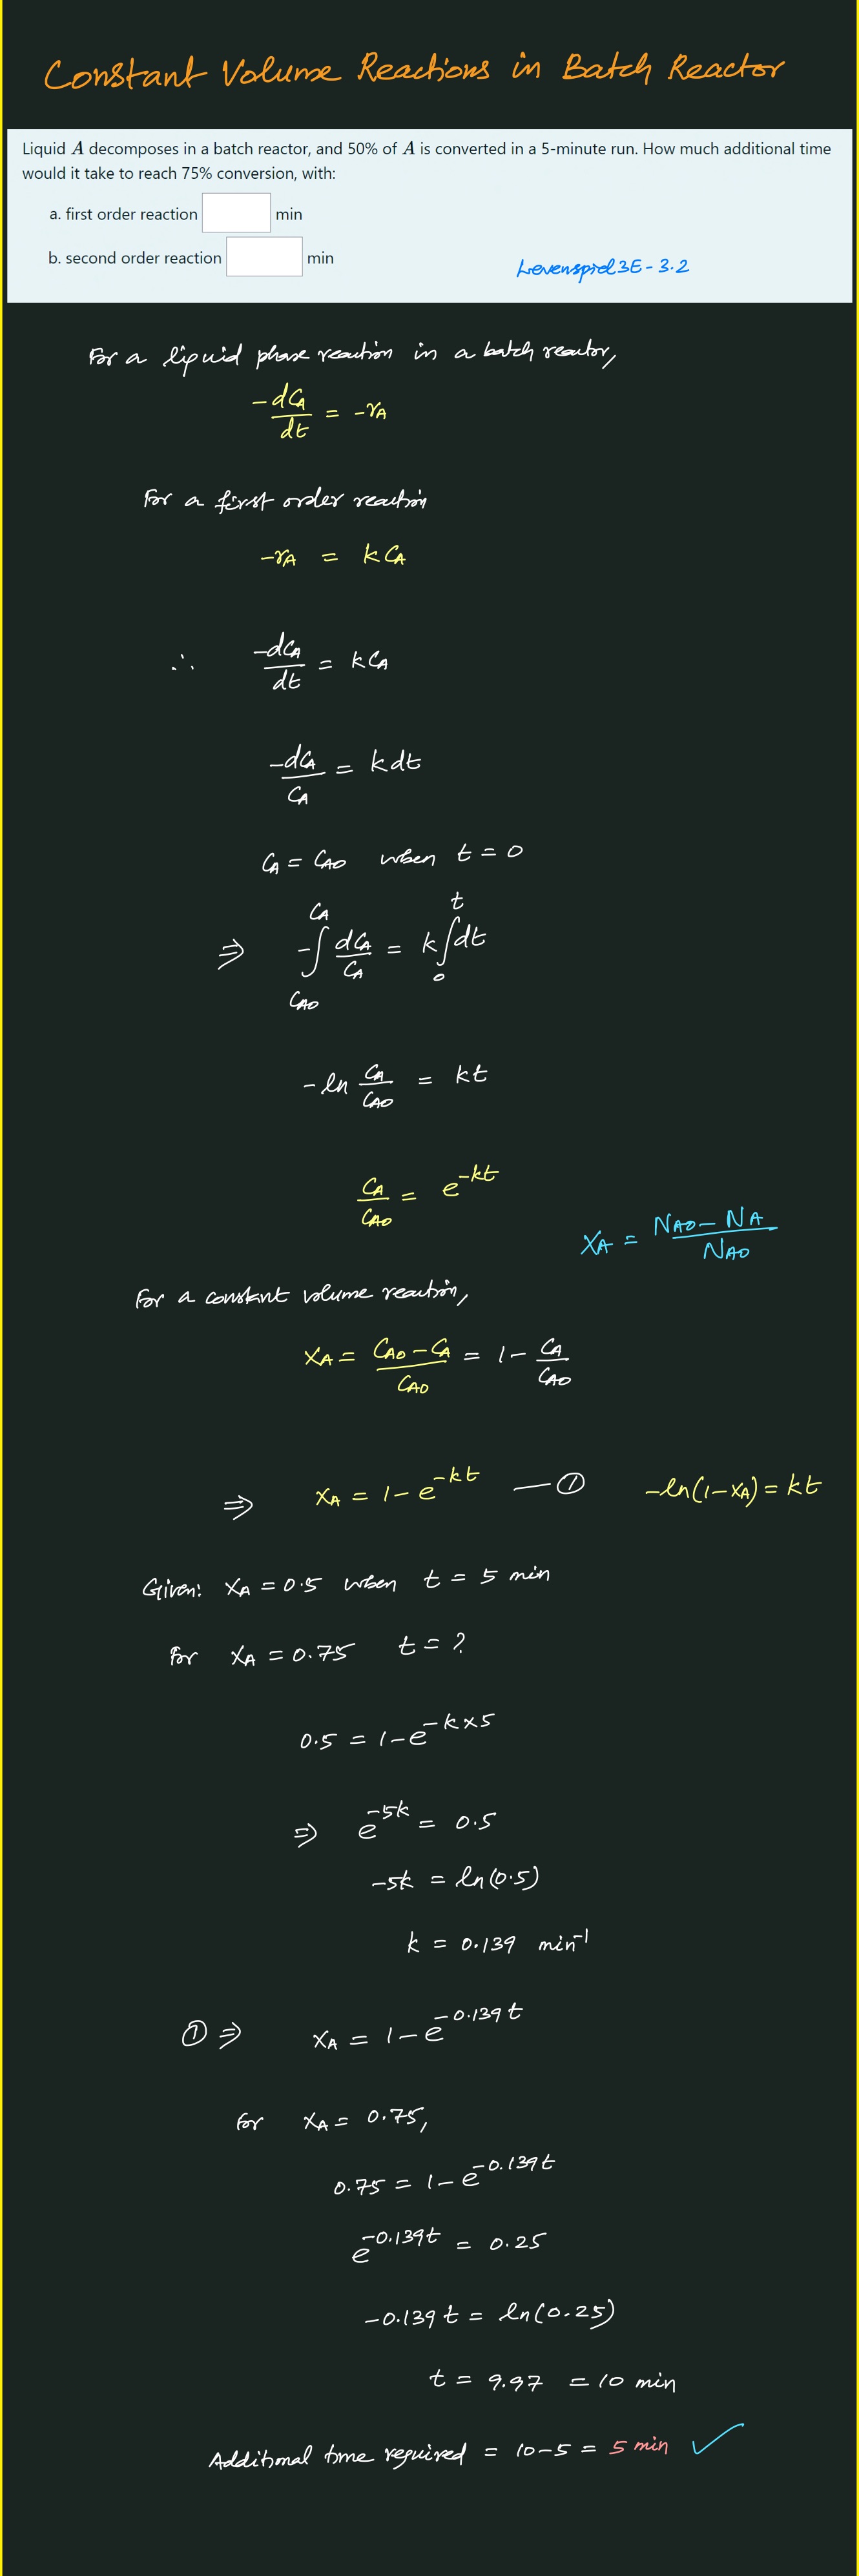 Constant Volume Reactions in Batch Reactor
Liquid A decomposes in a batch reactor, and 50% of A is converted in a 5-minute run. How much additional time
would it take to reach 75% conversion, with:
a. first order reaction min
b. second order reaction min
Levenspiel 3E - 3.2
For a liquid phase reaction in a batch reactor,
-dCA/dt = -rA
For a first order reaction
-rA = k CA
∴ -dCA/dt = kCA
-dCA/CA = k dt
CA = CA0 when t = 0
⇒ -∫_{CA0}^{CA} dCA/CA = k ∫_0^t dt
-ln CA/CA0 = kt
CA/CA0 = e^{-kt}
XA = (NA0 - NA)/NA0
For a constant volume reaction,
XA = (CA0 - CA)/CA0 = 1 - CA/CA0
⇒ XA = 1 - e^{-kt} — ① -ln(1-XA) = kt
Given: XA = 0.5 when t = 5 min
For XA = 0.75 t = ?
0.5 = 1 - e^{-k×5}
⇒ e^{-5k} = 0.5
-5k = ln(0.5)
k = 0.139 min^{-1}
① ⇒ XA = 1 - e^{-0.139t}
For XA = 0.75,
0.75 = 1 - e^{-0.139t}
e^{-0.139t} = 0.25
-0.139t = ln(0.25)
t = 9.97 = 10 min
Additional time required = 10-5 = 5 min ✓